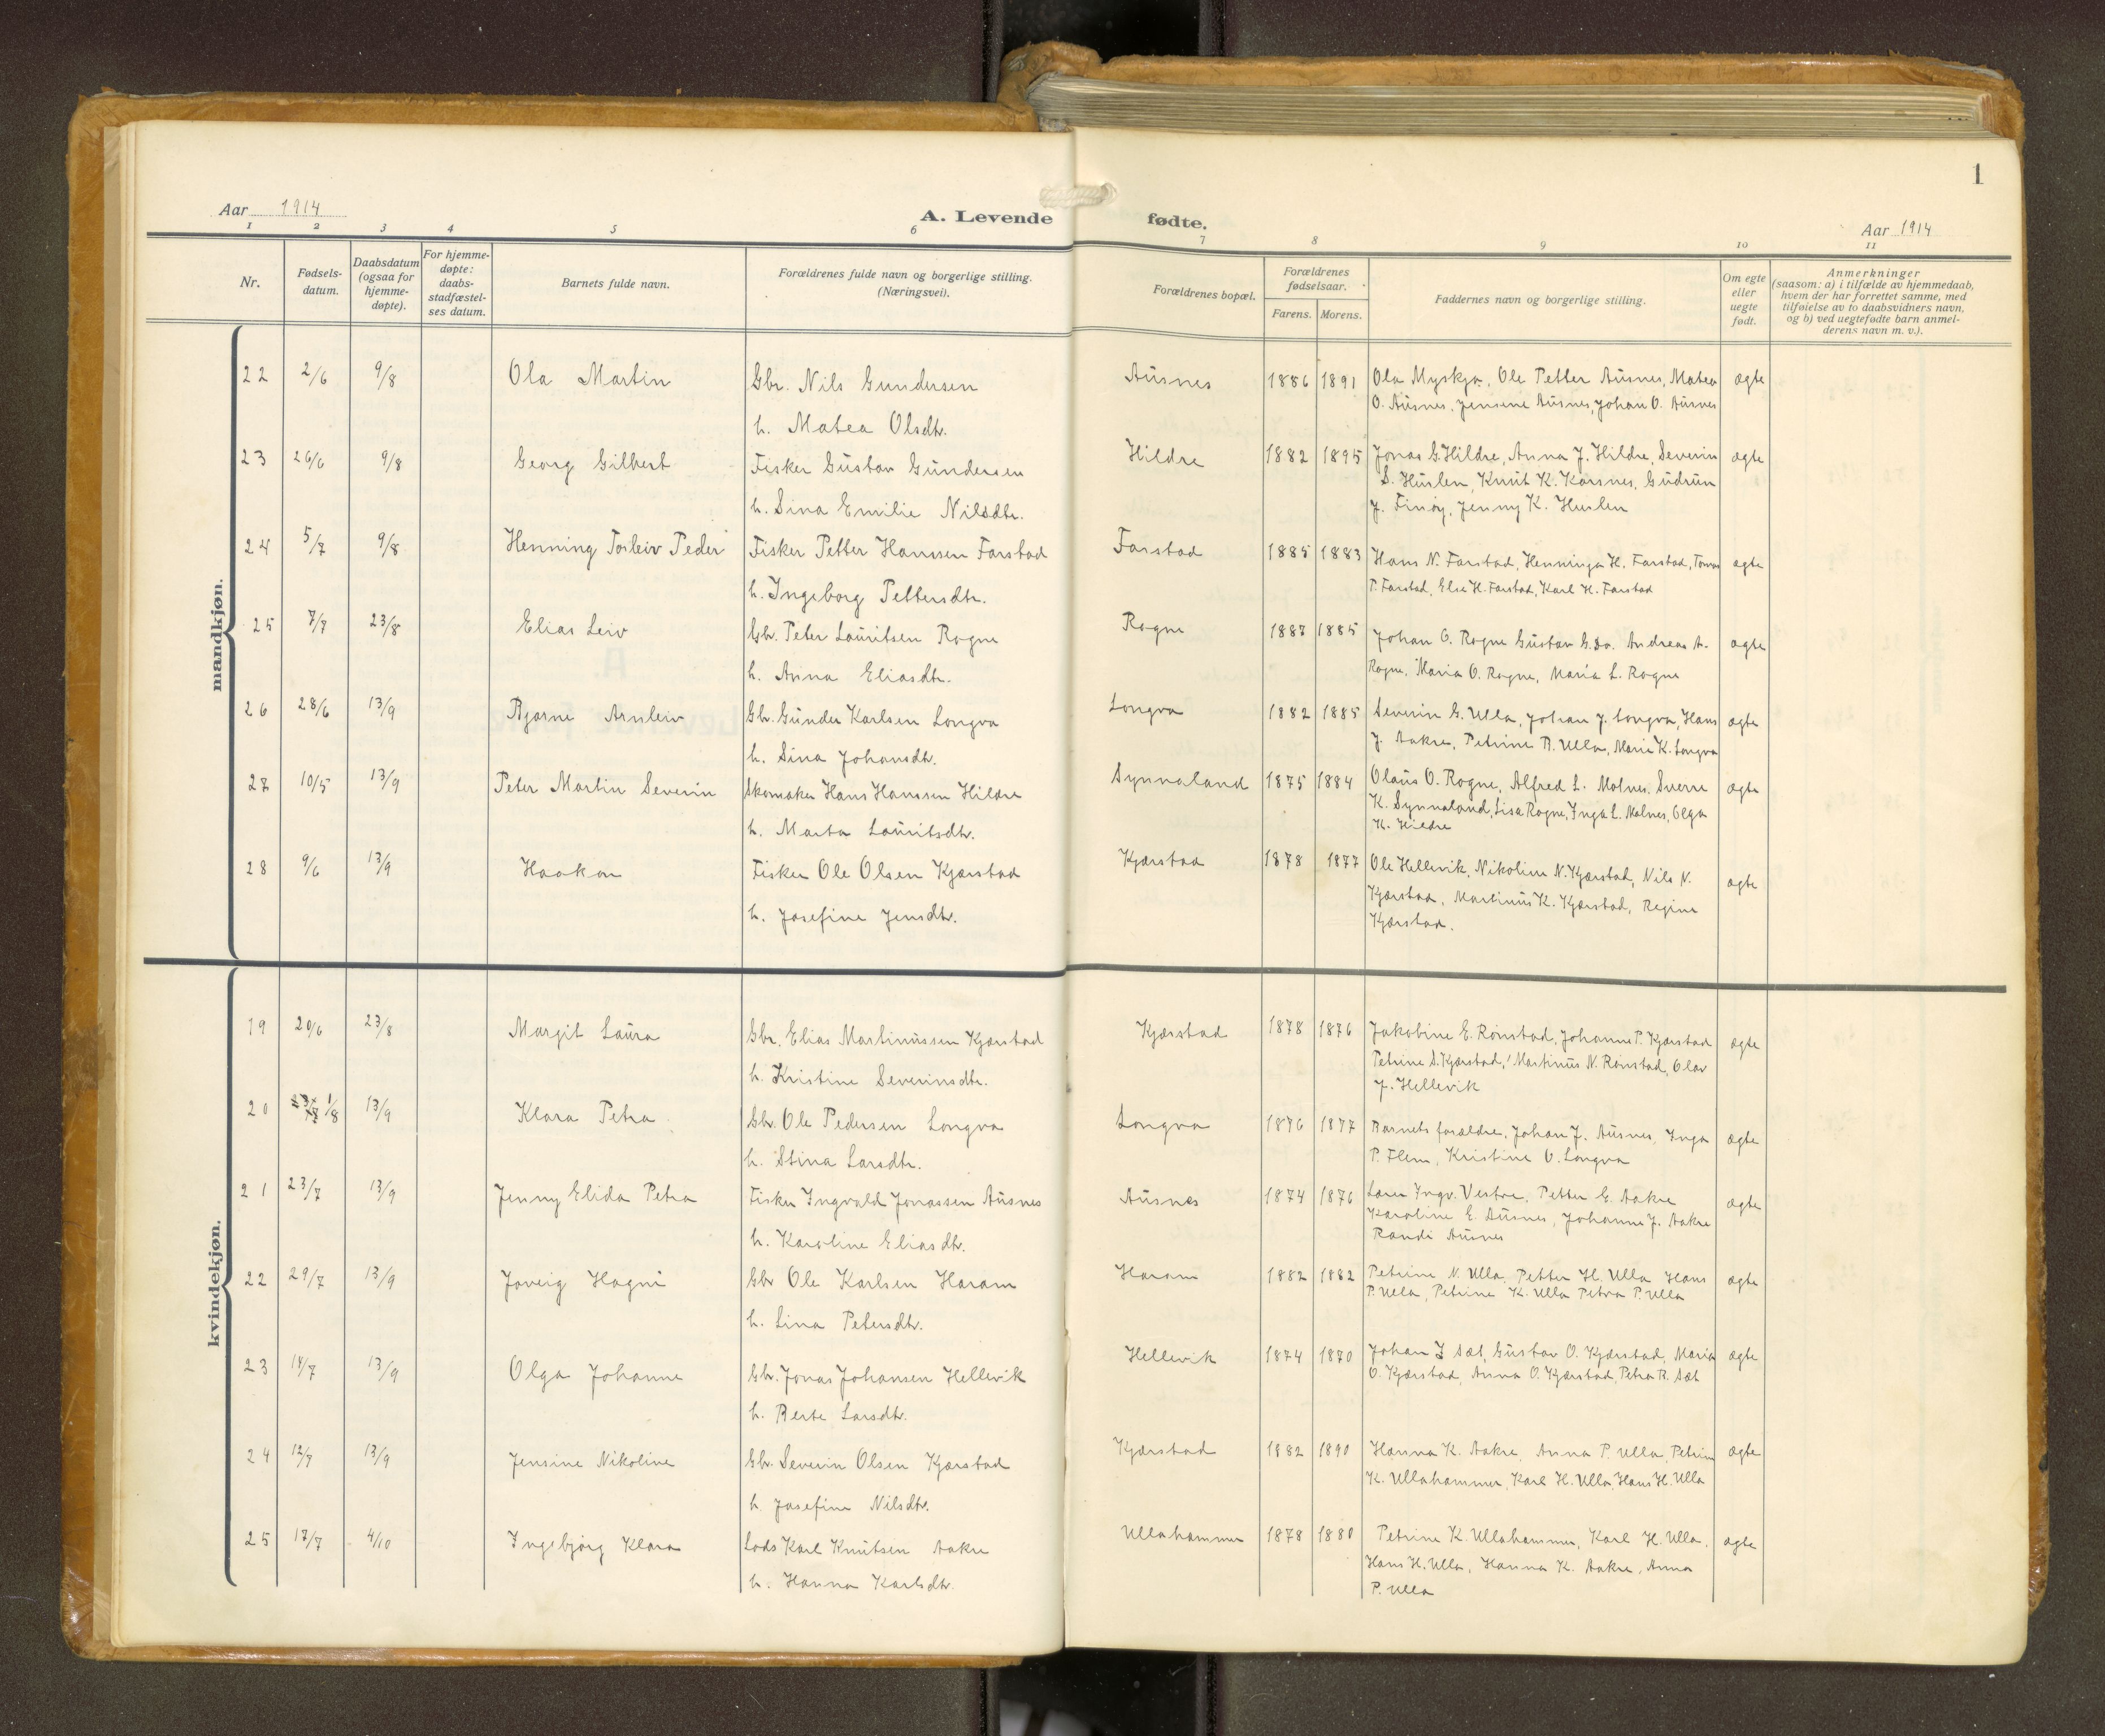 1
Aar 1914
A. Levende fødte.
Aar 1914
1 2 3 4 5 6 7 8 9 10 11
Nr.
Fødsels-
datum.
Daabsdatum
(ogsaa for
hjemme-
døpte).
For hjemme-
døpte:
daabs-
stadfæstel-
ses datum.
Barnets fulde navn.
Forældrenes fulde navn og borgerlige stilling.
(Næringsvei).
Forældrenes bopæl.
Forældrenes
fødselsaar.
Farens. Morens.
Faddernes navn og borgerlige stilling.
Om egte
eller
uegte
født.
Anmerkninger
(saasom: a) i tilfælde av hjemmedaab,
hvem der har forrettet samme, med
tilføielse av to daabsvidners navn,
og b) ved uegtefødte barn anmel-
derens navn m. v.).
mandkjøn.
22 2/6 9/8 Ola Martin Gbr. Nils Gundersen Ausnes 1886 1891 Ola Myskja, Ole Petter Ausnes, Matea ægte
h. Matea Olsdtr. O. Ausnes, Jensine Ausnes, Johan O. Ausnes
23 26/6 9/8 Georg Gilbert Fisker Gustav Gundersen Hildre 1882 1895 Jonas G. Hildre, Anna J. Hildre, Severin ægte
S. Huslen, Knut K. Korsnes, Gudrun
h. Sina Emilie Nilsdtr. J. Finøy, Jenny K. Huslen
24 5/7 9/8 Henning Torleiv Peder Fisker Petter Hanssen Farstad Farstad 1885 1883 Hans N. Farstad, Henninga H. Farstad, Tomas ægte
h. Ingeborg Pettersdtr. P. Farstad, Else H. Farstad, Karl H. Farstad
25 7/7 23/8 Elias Leiv Gbr. Peter Lauritsen Rogne Rogne 1887 1885 Johan O. Rogne Gustav G. do. Andreas A. ægte
h. Anna Eliasdtr. Rogne, Maria O. Rogne, Maria L. Rogne
26 28/6 13/9 Bjarne Arnleiv Gbr. Gunder Karlsen Longva Longva 1882 1885 Severin G. Ulla, Johan J. Longva, Hans ægte
h. Sina Johansdtr. J. Aakre, Petrine B. Ulla, Marie K. Longva
27 10/5 13/9 Peter Martin Severin Skomaker Hans Hanssen Hildre Synnaland 1875 1884 Olaus O. Rogne, Alfred L. Molnes, Sverre ægte
K. Synnaland, Lisa Rogne, Inga L. Molnes, Olga
h. Marta Lauritsdtr. K. Hildre
28 9/6 13/9 Haakon Fisker Ole Olsen Kjærstad Kjærstad 1878 1877 Ole Hellevik, Nikoline N. Kjærstad, Nils N. ægte
Kjærstad, Martinus K. Kjærstad, Regine
h. Josefine Jensdtr. Kjærstad.
kvindekjøn.
19 20/6 23/8 Margit Laura Gbr. Elias Martinussen Kjærstad Kjærstad 1878 1876 Jakobine E. Rønstad, Johanne P. Kjærstad ægte
Petrine S. Kjærstad, Martinus N. Rønstad, Olav
h. Kristine Severinsdtr. J. Hellevik
20 1/8 13/9 Klara Petra Gbr. Ole Pedersen Longva Longva 1876 1877 Barnets forældre, Johan J. Ausnes, Inga ægte
h. Stina Larsdtr. P. Flem, Kristine O. Longva
21 23/7 13/9 Jenny Elida Petra Fisker Ingvald Jonassen Ausnes Ausnes 1874 1876 Lærer Ingv. Vestre, Petter E. Aakre ægte
Karoline E. Ausnes, Johanne J. Aakre
h. Karoline Eliasdtr. Randi Ausnes
22 29/7 13/9 Hagni Gbr Ole Karlsen Haram Haram 1882 1882 Petrine N. Ulla, Petter H. Ulla Hans ægte
h. Lina Petersdtr. P. Ulla, Petrine K. Ulla Petra P. Ulla
23 14/7 13/9 Olga Johanne Gbr. Jonas Johansen Hellevik Hellevik 1874 1870 Johan J Sæt, Gustav O. Kjærstad, Maria ægte
h. Berte Larsdtr. O. Kjærstad, Anna O. Kjærstad, Petra R. Sæt
24 13/7 13/9 Jensine Nikoline Gbr. Severin Olsen Kjærstad Kjærstad 1882 1890 Hanna K. Aakre, Anna P. Ulla, Petrine ægte
h. Josefine Nilsdtr. K. Ullahammer, Karl H. Ulla, Hans H. Ulla
25 17/7 4/10 Ingebjørg Klara Lods Karl Knutsen Aakre Ullahammer 1878 1880 Petrine K. Ullahammer, Karl H. Ulla, ægte
Hans H. Ulla, Hanna K. Aakre, Anna
h. Hanna Karlsdtr. P. Ulla